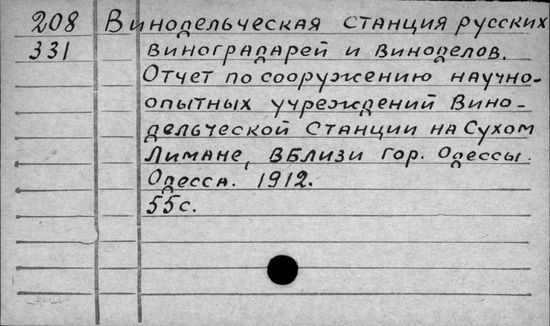 208 Винодельческая Станция русских
331 виноградарей и виноделов.
Отчет по сооружению научно-
опытных учреждений Вино-
дельческой Станции на Сухом
Лимане, вблизи гор. Одессы.
Одесса. 1912.
55с.